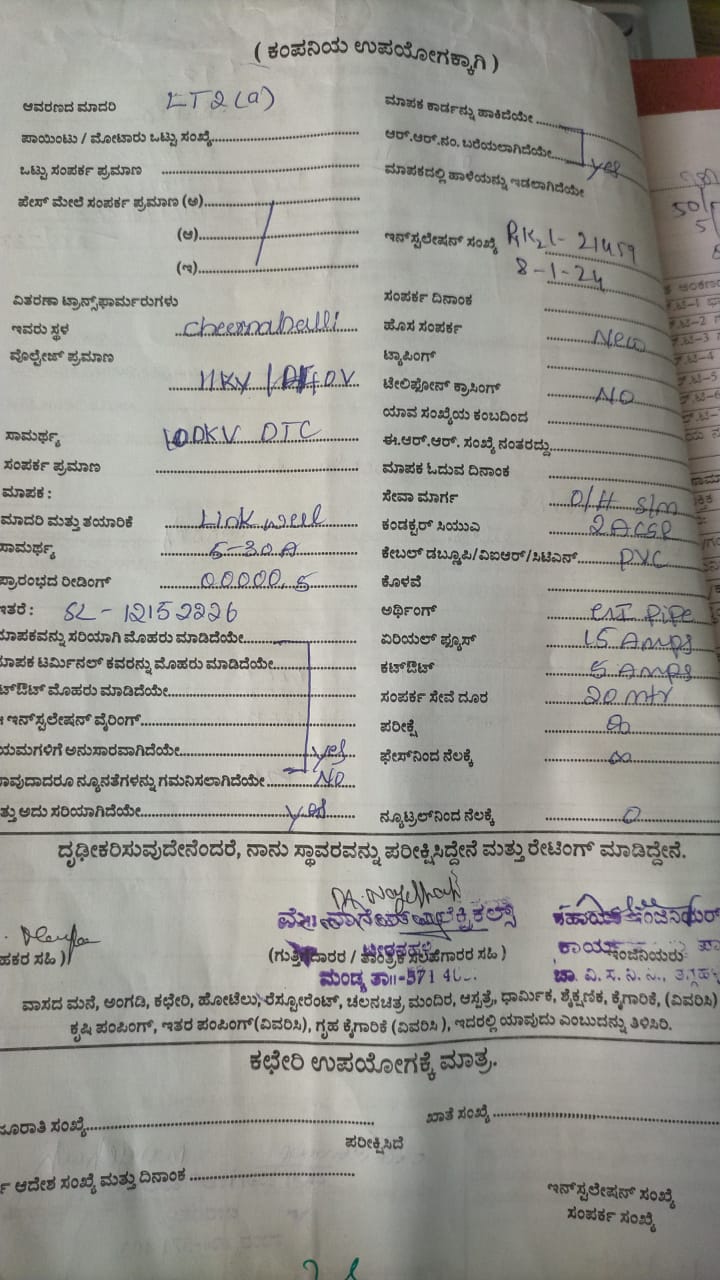 ( ಕಂಪನಿಯ ಉಪಯೋಗಕ್ಕಾಗಿ )
ಆವರಣದ ಮಾದರಿ LT2(a)
ಪಾಯಿಂಟು / ಮೋಟಾರು ಒಟ್ಟು ಸಂಖ್ಯೆ
ಒಟ್ಟು ಸಂಪರ್ಕ ಪ್ರಮಾಣ
ಫೇಸ್ ಮೇಲೆ ಸಂಪರ್ಕ ಪ್ರಮಾಣ (ಅ)
(ಆ)
(ಇ)
ವಿತರಣಾ ಟ್ರಾನ್ಸ್‌ಫಾರ್ಮರುಗಳು
ಇವರು ಸ್ಥಳ cheernahalli
ವೊಲ್ಟೇಜ್ ಪ್ರಮಾಣ
11KV /
ಸಾಮರ್ಥ್ಯ 100KV DTC
ಸಂಪರ್ಕ ಪ್ರಮಾಣ
ಮಾಪಕ :
ಮಾದರಿ ಮತ್ತು ತಯಾರಿಕೆ Link well
ಸಾಮರ್ಥ್ಯ 5-30A
ಪ್ರಾರಂಭದ ರೀಡಿಂಗ್ 00000.5
ಇತರೆ : SL - 12152226
ಮಾಪಕವನ್ನು ಸರಿಯಾಗಿ ಮೊಹರು ಮಾಡಿದೆಯೇ
ಮಾಪಕ ಟರ್ಮಿನಲ್ ಕವರನ್ನು ಮೊಹರು ಮಾಡಿದೆಯೇ
ಟ್‌ಔಟ್ ಮೊಹರು ಮಾಡಿದೆಯೇ
ಇನ್‌ಸ್ಟಲೇಷನ್ ವೈರಿಂಗ್
ಯಮಗಳಿಗೆ ಅನುಸಾರವಾಗಿದೆಯೇ yes
ವುದಾದರೂ ನ್ಯೂನತೆಗಳನ್ನು ಗಮನಿಸಲಾಗಿದೆಯೇ NO
ತ್ತು ಅದು ಸರಿಯಾಗಿದೆಯೇ yes
ಮಾಪಕ ಕಾರ್ಡನ್ನು ಹಾಕಿದೆಯೇ
ಆರ್.ಆರ್.ನಂ. ಬರೆಯಲಾಗಿದೆಯೇ yes
ಮಾಪಕದಲ್ಲಿ ಹಾಳೆಯನ್ನು ಇಡಲಾಗಿದೆಯೇ
ಇನ್‌ಸ್ಟಲೇಷನ್ ಸಂಖ್ಯೆ 21459
8-1-24
ಸಂಪರ್ಕ ದಿನಾಂಕ
ಹೊಸ ಸಂಪರ್ಕ New
ಟ್ಯಾಪಿಂಗ್
ಟೆಲಿಫೋನ್ ಕ್ರಾಸಿಂಗ್ NO
ಯಾವ ಸಂಖ್ಯೆಯ ಕಂಬದಿಂದ
ಈ.ಆರ್.ಆರ್. ಸಂಖ್ಯೆ ನಂತರದ್ದು
ಮಾಪಕ ಓದುವ ದಿನಾಂಕ
ಸೇವಾ ಮಾರ್ಗ O/H S/m
ಕಂಡಕ್ಟರ್ ಸಿಯುಎ 2ACSR
ಕೇಬಲ್ ಡಬ್ಲ್ಯೂಪಿ/ವಿಐಆರ್/ಸಿಟಿಎಸ್ PVC
ಕೊಳವೆ
ಅರ್ಥಿಂಗ್ GI pipe
ಏರಿಯಲ್ ಫ್ಯೂಸ್ 15 Amps
ಕಟ್‌ಔಟ್ 5 Amps
ಸಂಪರ್ಕ ಸೇವೆ ದೂರ 20 mtr
ಪರೀಕ್ಷೆ ∞
ಫೇಸ್‌ನಿಂದ ನೆಲಕ್ಕೆ ∞
ನ್ಯೂಟ್ರಲ್‌ನಿಂದ ನೆಲಕ್ಕೆ 0
ದೃಢೀಕರಿಸುವುದೇನೆಂದರೆ, ನಾನು ಸ್ಥಾವರವನ್ನು ಪರೀಕ್ಷಿಸಿದ್ದೇನೆ ಮತ್ತು ರೇಟಿಂಗ್ ಮಾಡಿದ್ದೇನೆ.
ಹಕರ ಸಹಿ )
(ಗುತ್ತಿಗೆದಾರರ / ತಾಂತ್ರಿಕ ಸಲಹೆಗಾರರ ಸಹಿ )
ಮಂಡ್ಯ ತಾ॥-571
ಸಹಾಯಕ ಇಂಜಿನಿಯರ್
ಇಂಜಿನಿಯರು
ಚಾ. ವಿ. ಸ. ನಿ. ನಿ.,
ವಾಸದ ಮನೆ, ಅಂಗಡಿ, ಕಛೇರಿ, ಹೋಟೆಲು, ರೆಸ್ಟೋರೆಂಟ್, ಚಲನಚಿತ್ರ ಮಂದಿರ, ಆಸ್ಪತ್ರೆ, ಧಾರ್ಮಿಕ, ಶೈಕ್ಷಣಿಕ, ಕೈಗಾರಿಕೆ, (ವಿವರಿಸಿ)
ಕೃಷಿ ಪಂಪಿಂಗ್, ಇತರ ಪಂಪಿಂಗ್(ವಿವರಿಸಿ), ಗೃಹ ಕೈಗಾರಿಕೆ (ವಿವರಿಸಿ ), ಇದರಲ್ಲಿ ಯಾವುದು ಎಂಬುದನ್ನು ತಿಳಿಸಿರಿ.
ಕಛೇರಿ ಉಪಯೋಗಕ್ಕೆ ಮಾತ್ರ.
ಜೂರಾತಿ ಸಂಖ್ಯೆ
ಖಾತೆ ಸಂಖ್ಯೆ
ಪರೀಕ್ಷಿಸಿದೆ
ಆದೇಶ ಸಂಖ್ಯೆ ಮತ್ತು ದಿನಾಂಕ
ಇನ್‌ಸ್ಟಲೇಷನ್ ಸಂಖ್ಯೆ
ಸಂಪರ್ಕ ಸಂಖ್ಯೆ